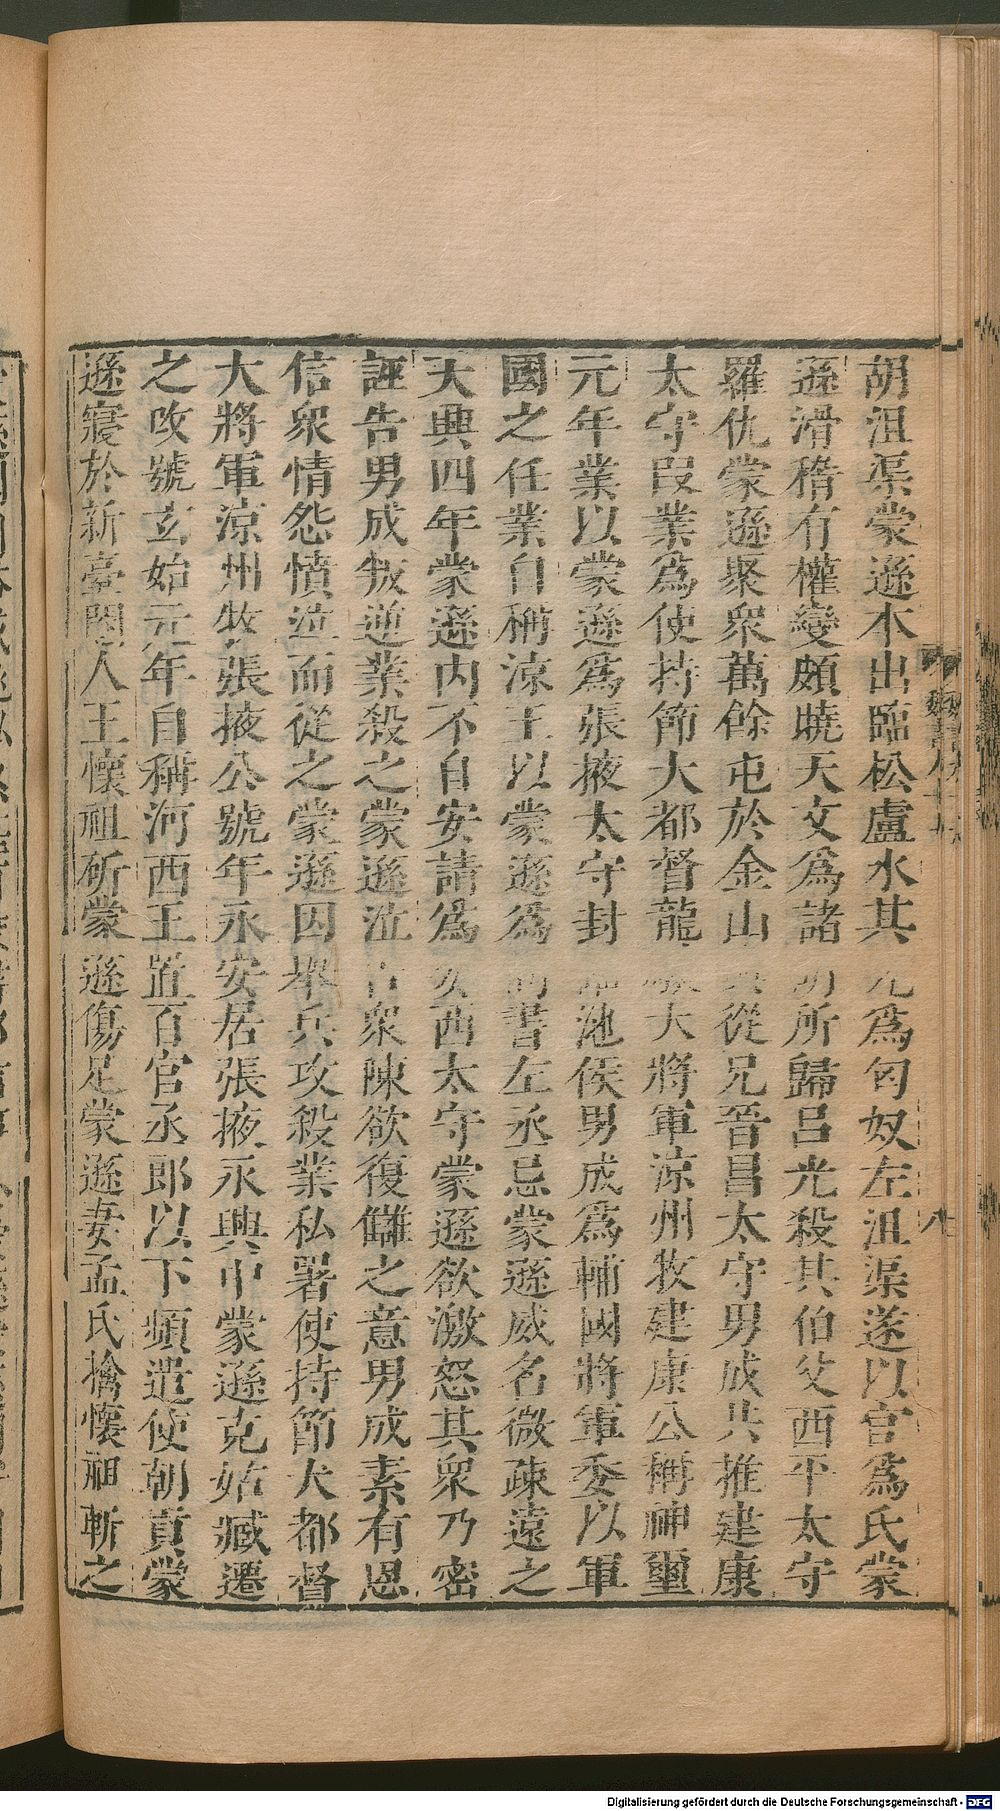 胡沮渠蒙遜本出臨松盧水其先爲匈奴左沮渠遂以官爲氏蒙
遜滑稽有權變頗曉天文爲諸胡所歸呂光殺其伯父西平太守
羅仇蒙遜聚衆萬餘屯於金山與從兄晉昌太守男成共推建康
太守叚業爲使持節大都督龍驤大將軍涼州牧建康公稱神璽
元年業以蒙遜爲張掖太守封臨池侯男成爲輔國將軍委以軍
國之任業自稱涼王以蒙遜爲尚書左丞忌蒙遜威名微疎遠之
天興四年蒙遜內不自安請爲安西太守蒙遜欲激怒其衆乃密
誣告男成叛逆業殺之蒙遜泣告衆陳欲復讎之意男成素有恩
信衆情怨憤泣而從之蒙遜因舉兵攻殺業私署使持節大都督
大將軍涼州牧張掖公號年永安居張掖永興中蒙遜克姑臧遷
之改號玄始元年自稱河西王置百官丞郎以下頻遣使朝貢蒙
遜寢於新臺閹人王懷祖斫蒙遜傷足蒙遜妻孟氏擒懷祖斬之
Digitalisierung gefördert durch die Deutsche Forschungsgemeinschaft - DFG